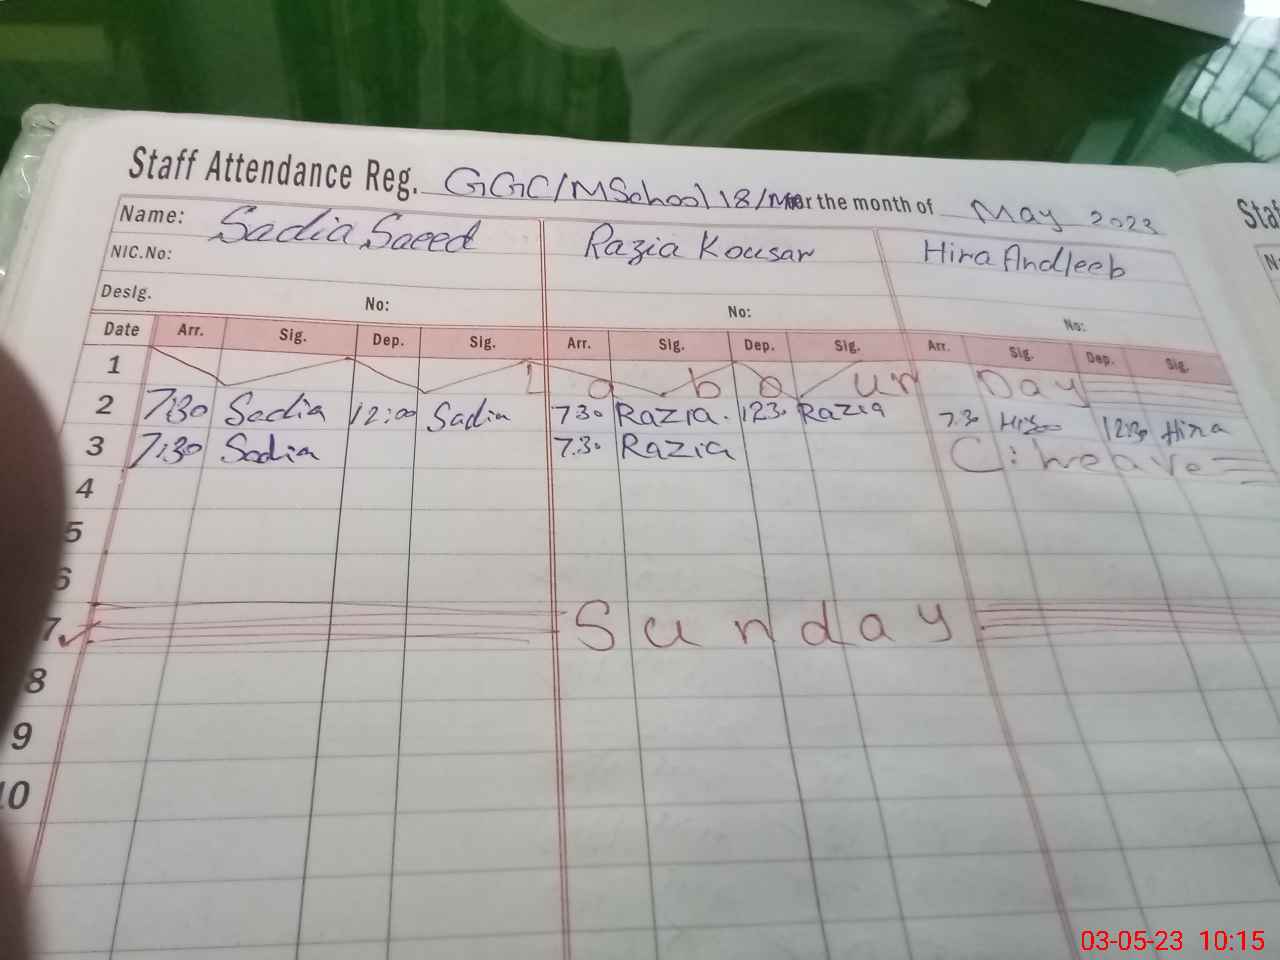 Staff Attendance Reg. GGC/MSchool 18/M for the month of May 2023
Name: Sadia Saeed Razia Kousar Hira Andleeb
NIC.No:
Desig. No: No: No:
Date Arr. Sig. Dep. Sig. Arr. Sig. Dep. Sig. Arr. Sig. Dep. Sig.
1 Labour Day
2 7:30 Sadia 12:00 Sadia 7 30 Razia. 12 30 Razia 7.30 12:30 Hira
3 7:30 Sadia 7.30 Razia C: leave
4
5
6
7 Sunday
8
9
10
Sta
N
03-05-23 10:15